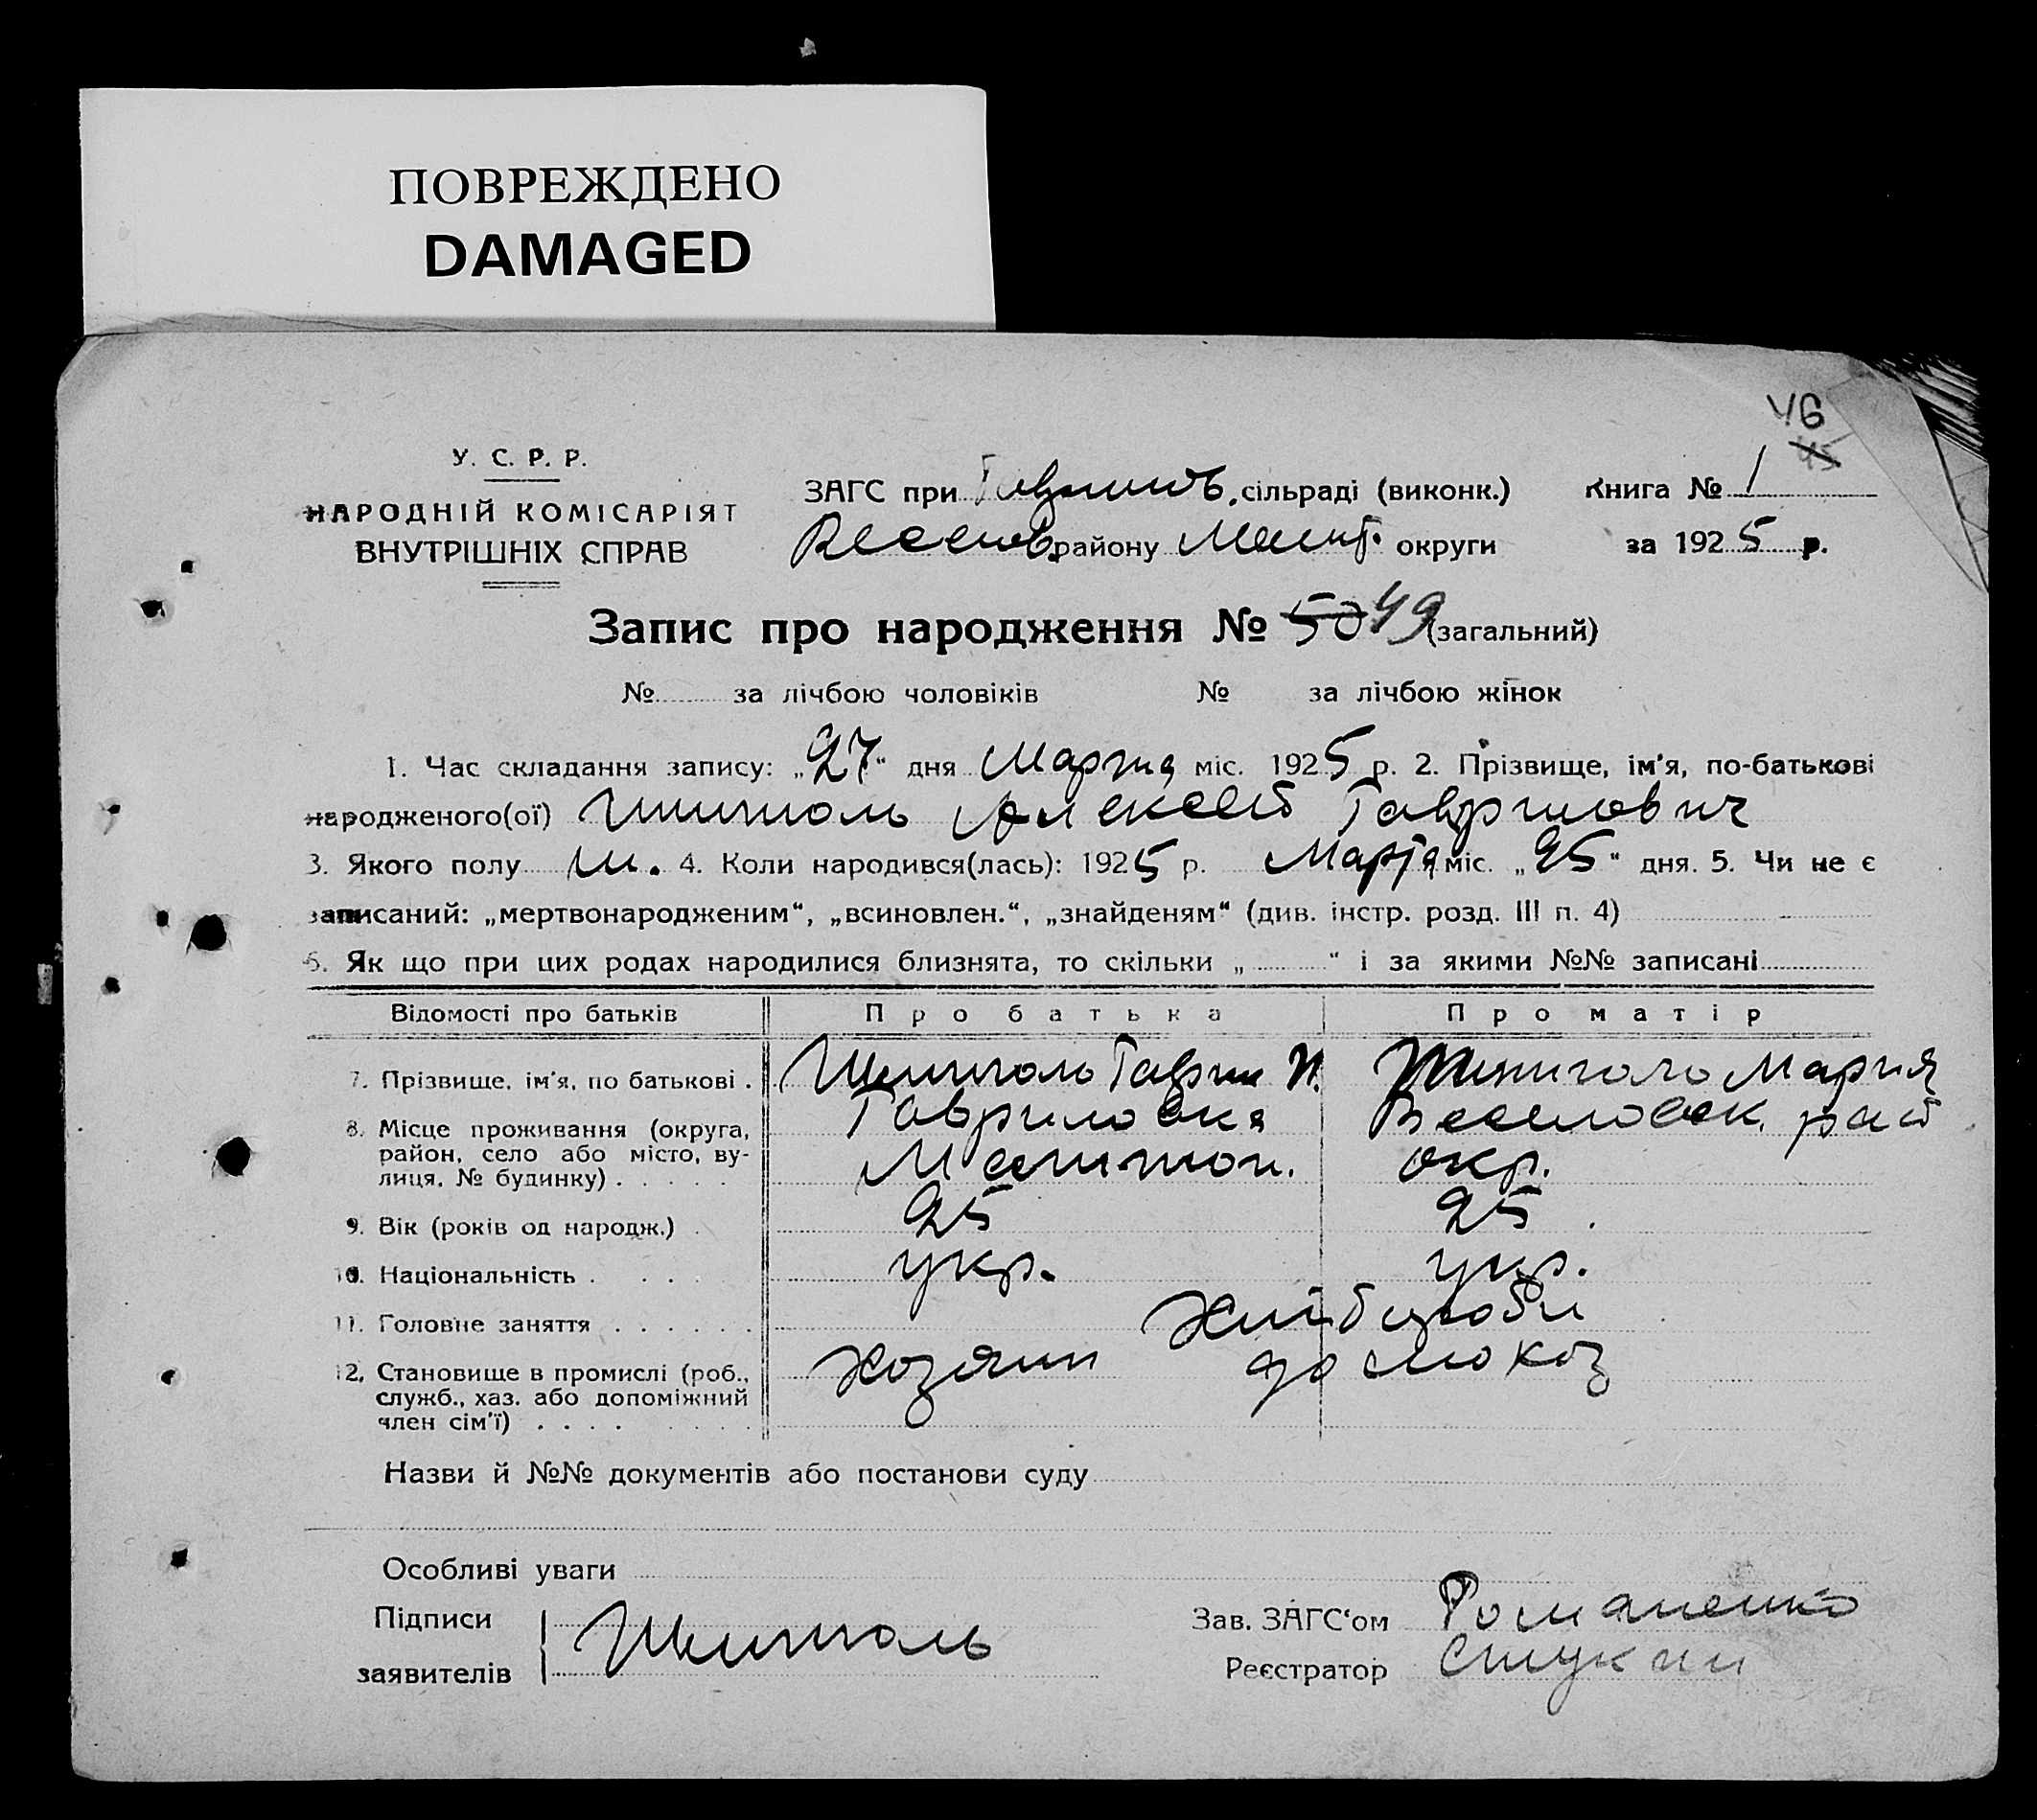 ПОВРЕЖДЕНО
DAMAGED
46
45
У. С. Р. Р.
НАРОДНІЙ КОМІСАРІЯТ
ВНУТРІШНІХ СПРАВ
ЗАГС при сільраді (виконк.) Книга № 1
району Мелит. округи за 1925 р.
Запис про народження № 50 49 (загальний)
№ за лічбою чоловіків № за лічбою жінок
1. Час складання запису: „27“ дня Марта міс. 1925 р. 2. Прізвище, ім'я, по-батькові
народженого(ої) Алексей Гаврилович
3. Якого полу м. 4. Коли народився(лась): 1925 р. Марта міс. „25“ дня. 5. Чи не є
записаний: „мертвонародженим“, „всиновлен.“, „знайденям“ (див. інстр. розд. III п. 4)
6. Як що при цих родах народилися близнята, то скільки „ “ і за якими №№ записані
Відомості про батьків Про батька Про матір
7. Прізвище, ім'я, по батькові . Гаврил И. Мария
8. Місце проживання (округа, район, село або місто, вулиця, № будинку) . . . . . Гавриловка Веселовск. рай
Мелитоп. окр.
9. Вік (років од народж.) . 25 25
10. Національність . . . . укр. укр.
11. Головне заняття . . . . . . Хлібороби
12. Становище в промислі (роб., служб., хаз. або допоміжний член сім'ї) . . . . Хозяин домохоз
Назви й №№ документів або постанови суду
Особливі уваги
Підписи
заявителів
Зав. ЗАГС'ом Романенко
Реєстратор Стукин